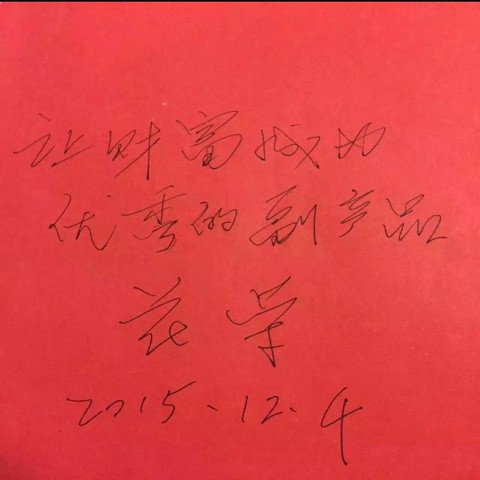 让财富成功
优秀的副产品
花荣
2015.12.4